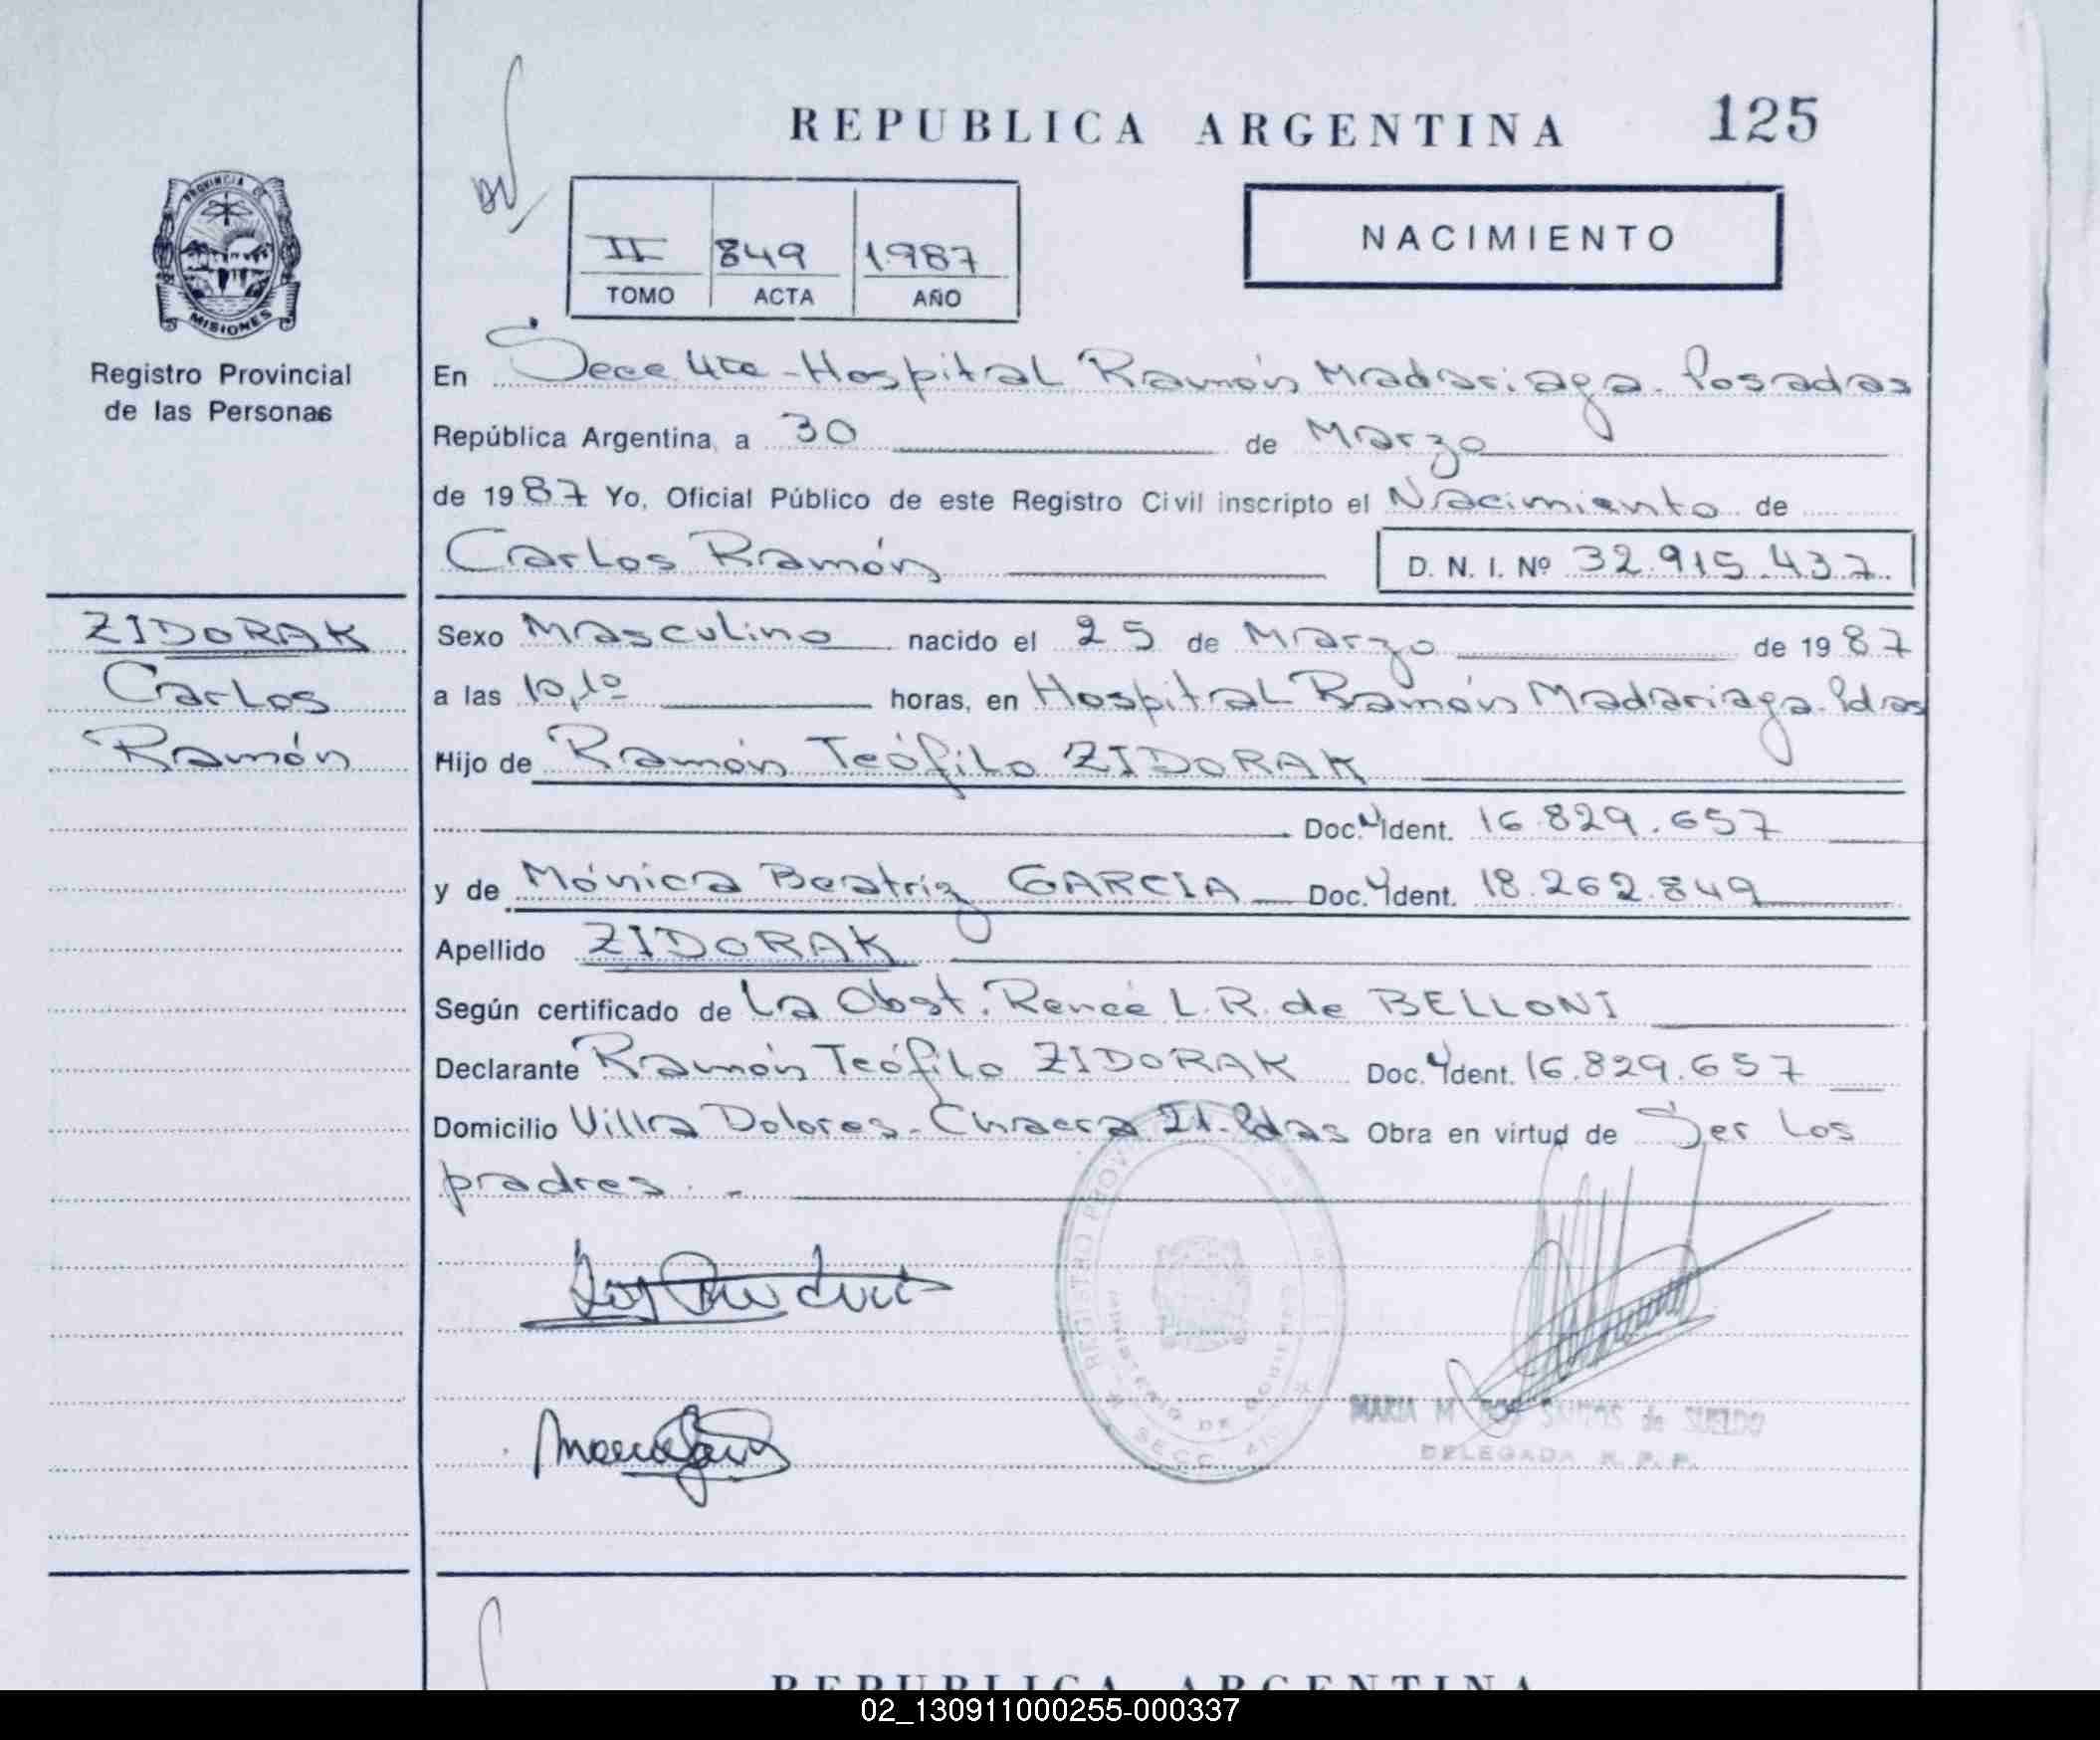 REPUBLICA ARGENTINA 125
PROVINCIA DE
MISIONES
Registro Provincial
de las Personas
II 849 1987
TOMO ACTA AÑO
NACIMIENTO
En Secc 4ta - Hospital Ramón Madariaga. Posadas
República Argentina, a 30 de Marzo
de 1987 Yo, Oficial Público de este Registro Civil inscripto el Nacimiento de
Carlos Ramón D. N. I. Nº 32.915.437.
ZIDORAK
Carlos
Ramón
Sexo Masculino nacido el 25 de Marzo de 1987
a las 10,10 horas, en Hospital Ramón Madariaga. Pdas
Hijo de Ramón Teófilo ZIDORAK
Doc. Ident. 16.829.657
y de Mónica Beatriz GARCIA Doc. Ident. 18.262.849
Apellido ZIDORAK
Según certificado de La Obst. Reneé L. R. de BELLONI
Declarante Ramón Teófilo ZIDORAK Doc. Ident. 16.829.657
Domicilio Villa Dolores - Chacra 21. Pdas Obra en virtud de Ser los
padres. -
REGISTRO PROV
MINISTERIO DE GOBIE
SECC. 4ta
MARIA M. DOS SANTOS de SUELDO
DELEGADA R. P. P.
REPUBLICA ARGENTINA
02_130911000255-000337